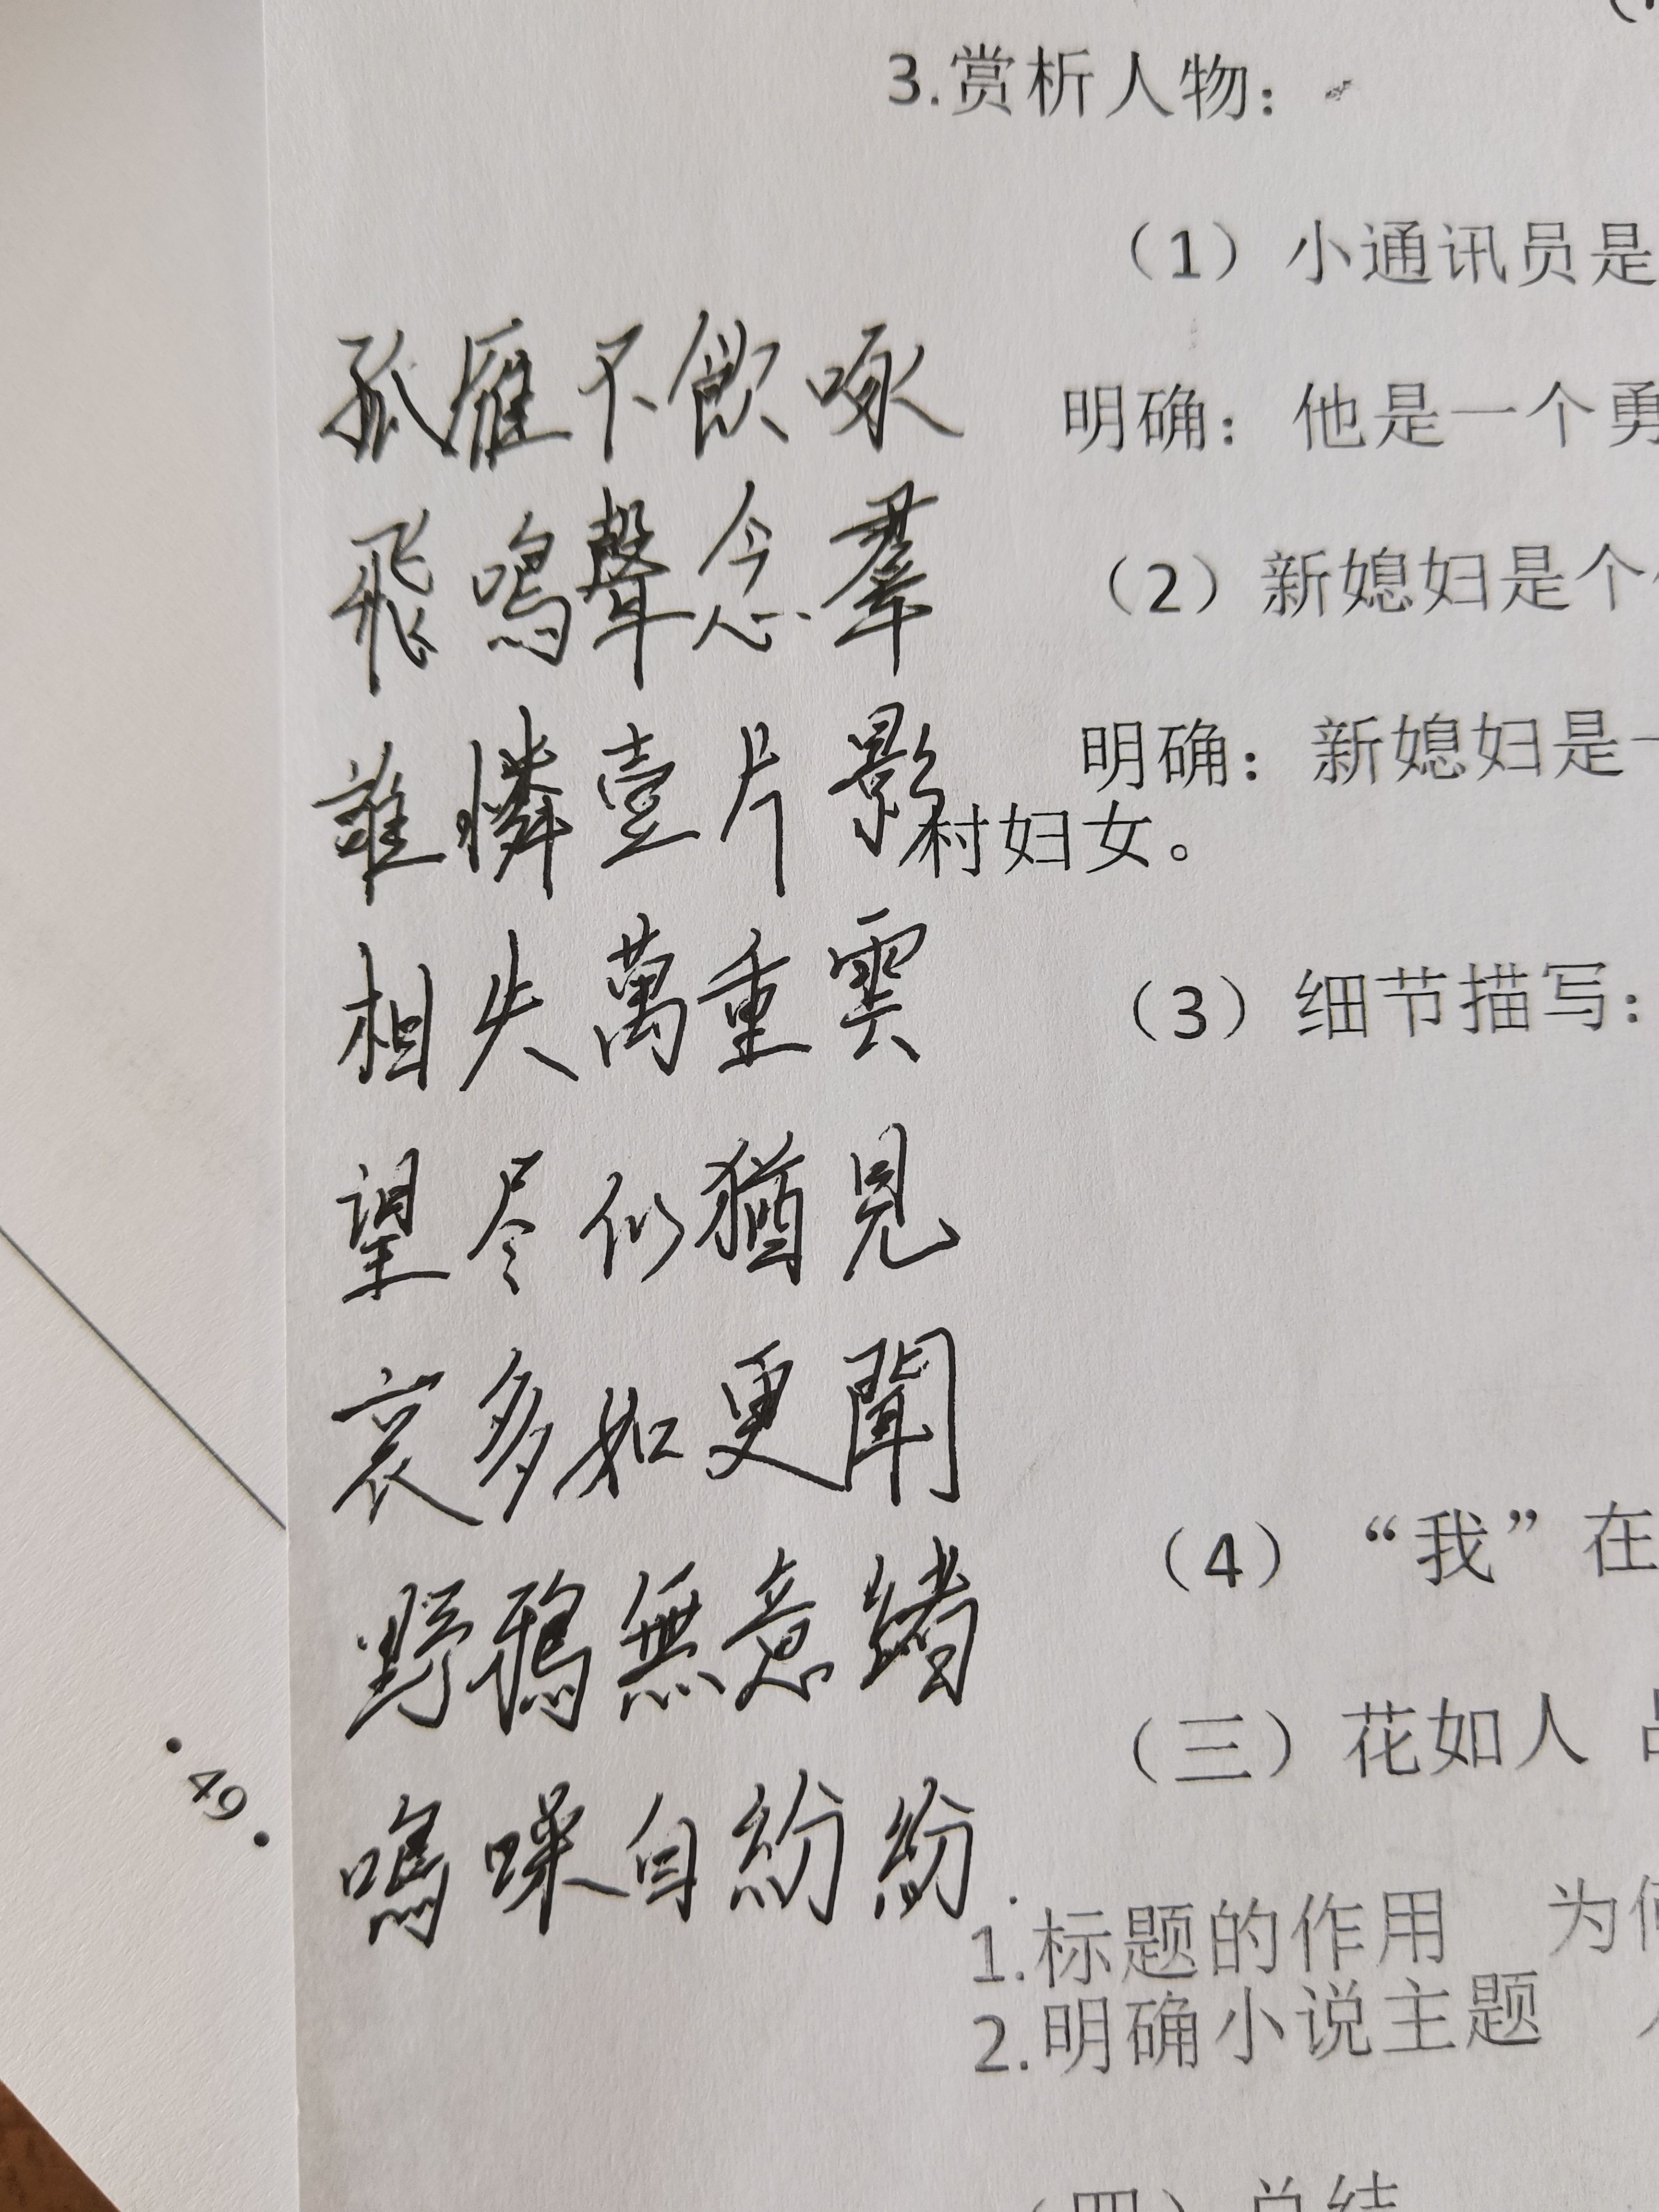 3.赏析人物：
（1）小通讯员是
孤雁不飲啄
明确：他是一个勇
飛鳴聲念羣
（2）新媳妇是个
誰憐壹片影
明确：新媳妇是一
村妇女。
相失萬重雲
（3）细节描写：
望尽似猶見
哀多如更聞
（4）“我”在
野鴉無意緒
（三）花如人 品
鳴噪自紛紛.
1.标题的作用 为何
2.明确小说主题
·49·
（四）总结